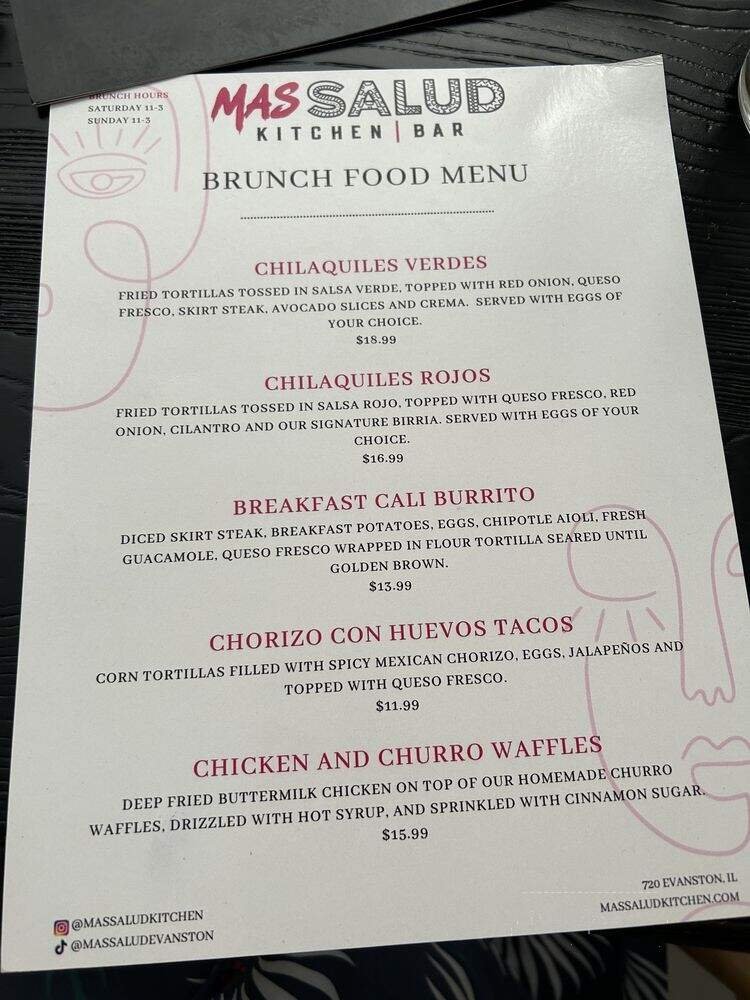 BRUNCH HOURS
SATURDAY 11-3
SUNDAY 11-3
MAS SALUD
KITCHEN | BAR
BRUNCH FOOD MENU
CHILAQUILES VERDES
FRIED TORTILLAS TOSSED IN SALSA VERDE, TOPPED WITH RED ONION, QUESO
FRESCO, SKIRT STEAK, AVOCADO SLICES AND CREMA. SERVED WITH EGGS OF
YOUR CHOICE.
$18.99
CHILAQUILES ROJOS
FRIED TORTILLAS TOSSED IN SALSA ROJO, TOPPED WITH QUESO FRESCO, RED
ONION, CILANTRO AND OUR SIGNATURE BIRRIA. SERVED WITH EGGS OF YOUR
CHOICE.
$16.99
BREAKFAST CALI BURRITO
DICED SKIRT STEAK, BREAKFAST POTATOES, EGGS, CHIPOTLE AIOLI, FRESH
GUACAMOLE, QUESO FRESCO WRAPPED IN FLOUR TORTILLA SEARED UNTIL
GOLDEN BROWN.
$13.99
CHORIZO CON HUEVOS TACOS
CORN TORTILLAS FILLED WITH SPICY MEXICAN CHORIZO, EGGS, JALAPEÑOS AND
TOPPED WITH QUESO FRESCO.
$11.99
CHICKEN AND CHURRO WAFFLES
DEEP FRIED BUTTERMILK CHICKEN ON TOP OF OUR HOMEMADE CHURRO
WAFFLES, DRIZZLED WITH HOT SYRUP, AND SPRINKLED WITH CINNAMON SUGAR.
$15.99
@MASSALUDKITCHEN
@MASSALUDEVANSTON
720 EVANSTON, IL
MASSALUDKITCHEN.COM